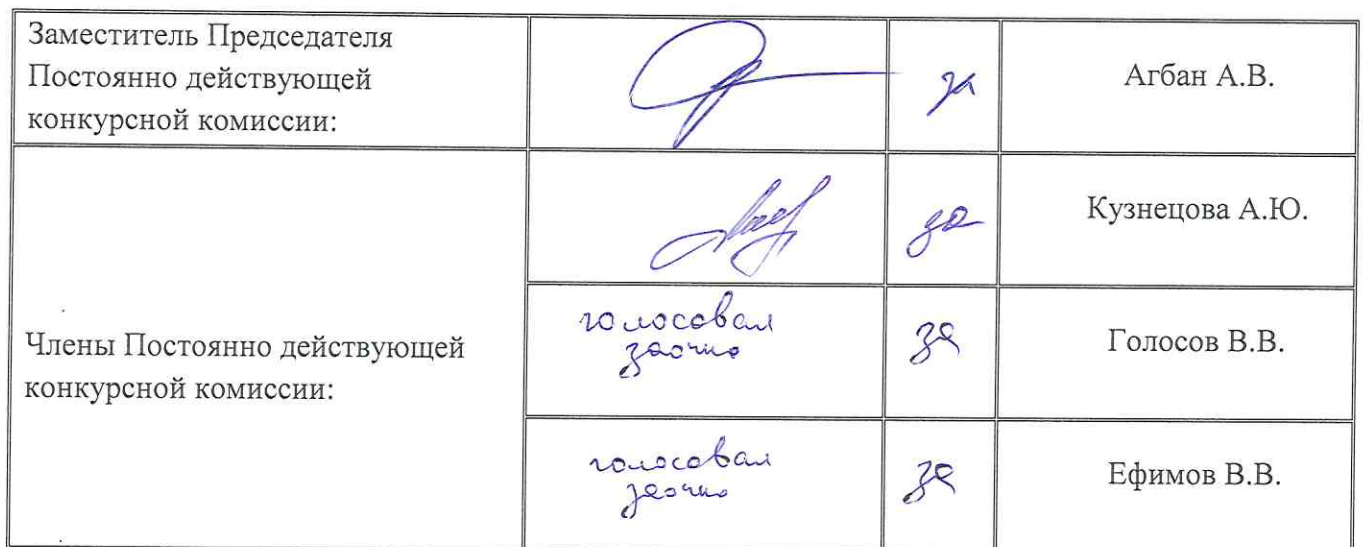 Заместитель Председателя
Постоянно действующей
конкурсной комиссии:
за
Агбан А.В.
за
Кузнецова А.Ю.
Члены Постоянно действующей
конкурсной комиссии:
голосовал
заочно
за
Голосов В.В.
голосовал
заочно
за
Ефимов В.В.